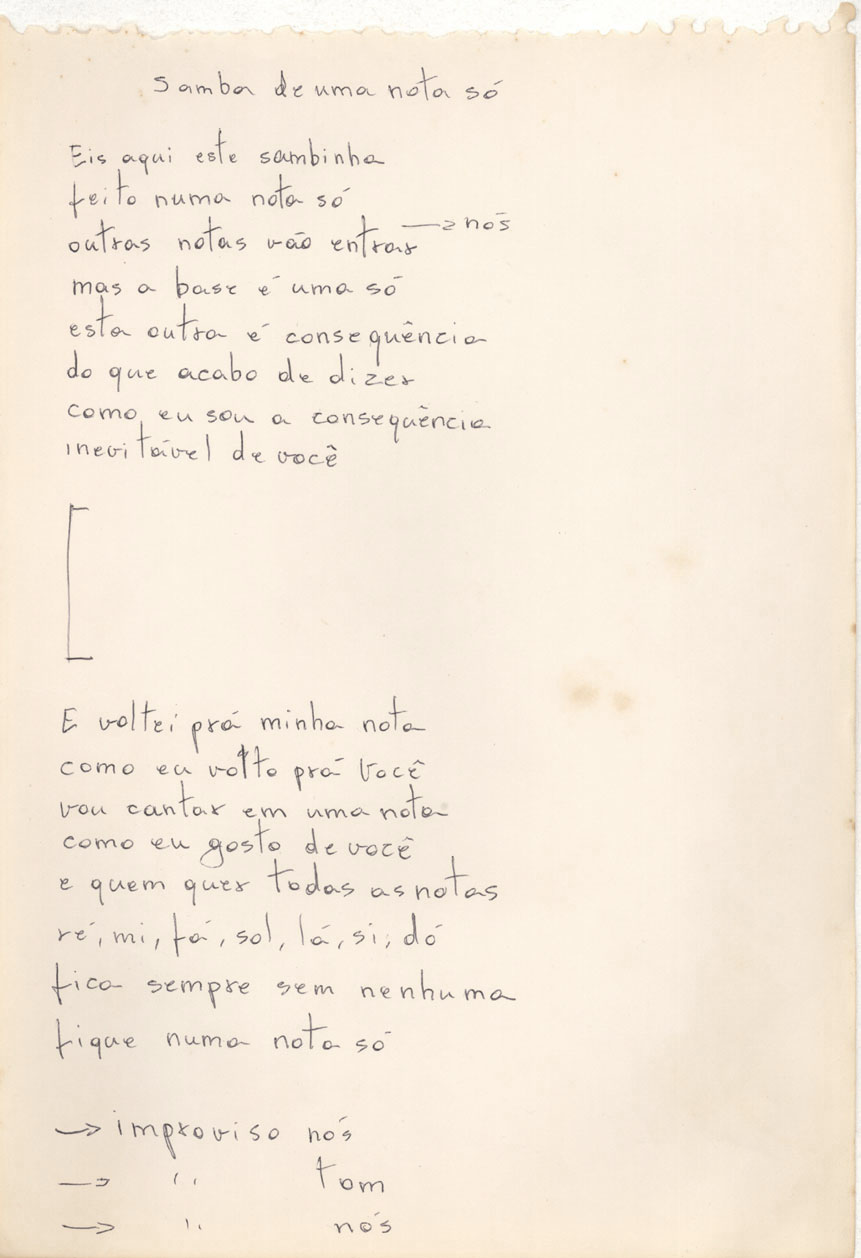 Samba de uma nota só
Eis aqui este sambinha
feito numa nota só
outras notas vão entrar → nós
mas a base é uma só
esta outra é consequência
do que acabo de dizer
como eu sou a consequência
inevitável de você
E voltei prá minha nota
como eu volto prá você
vou cantar em uma nota
como eu gosto de você
e quem quer todas as notas
ré, mi, fá, sol, lá, si, dó
fica sempre sem nenhuma
fique numa nota só
→ improviso nós
→ " tom
→ " nós